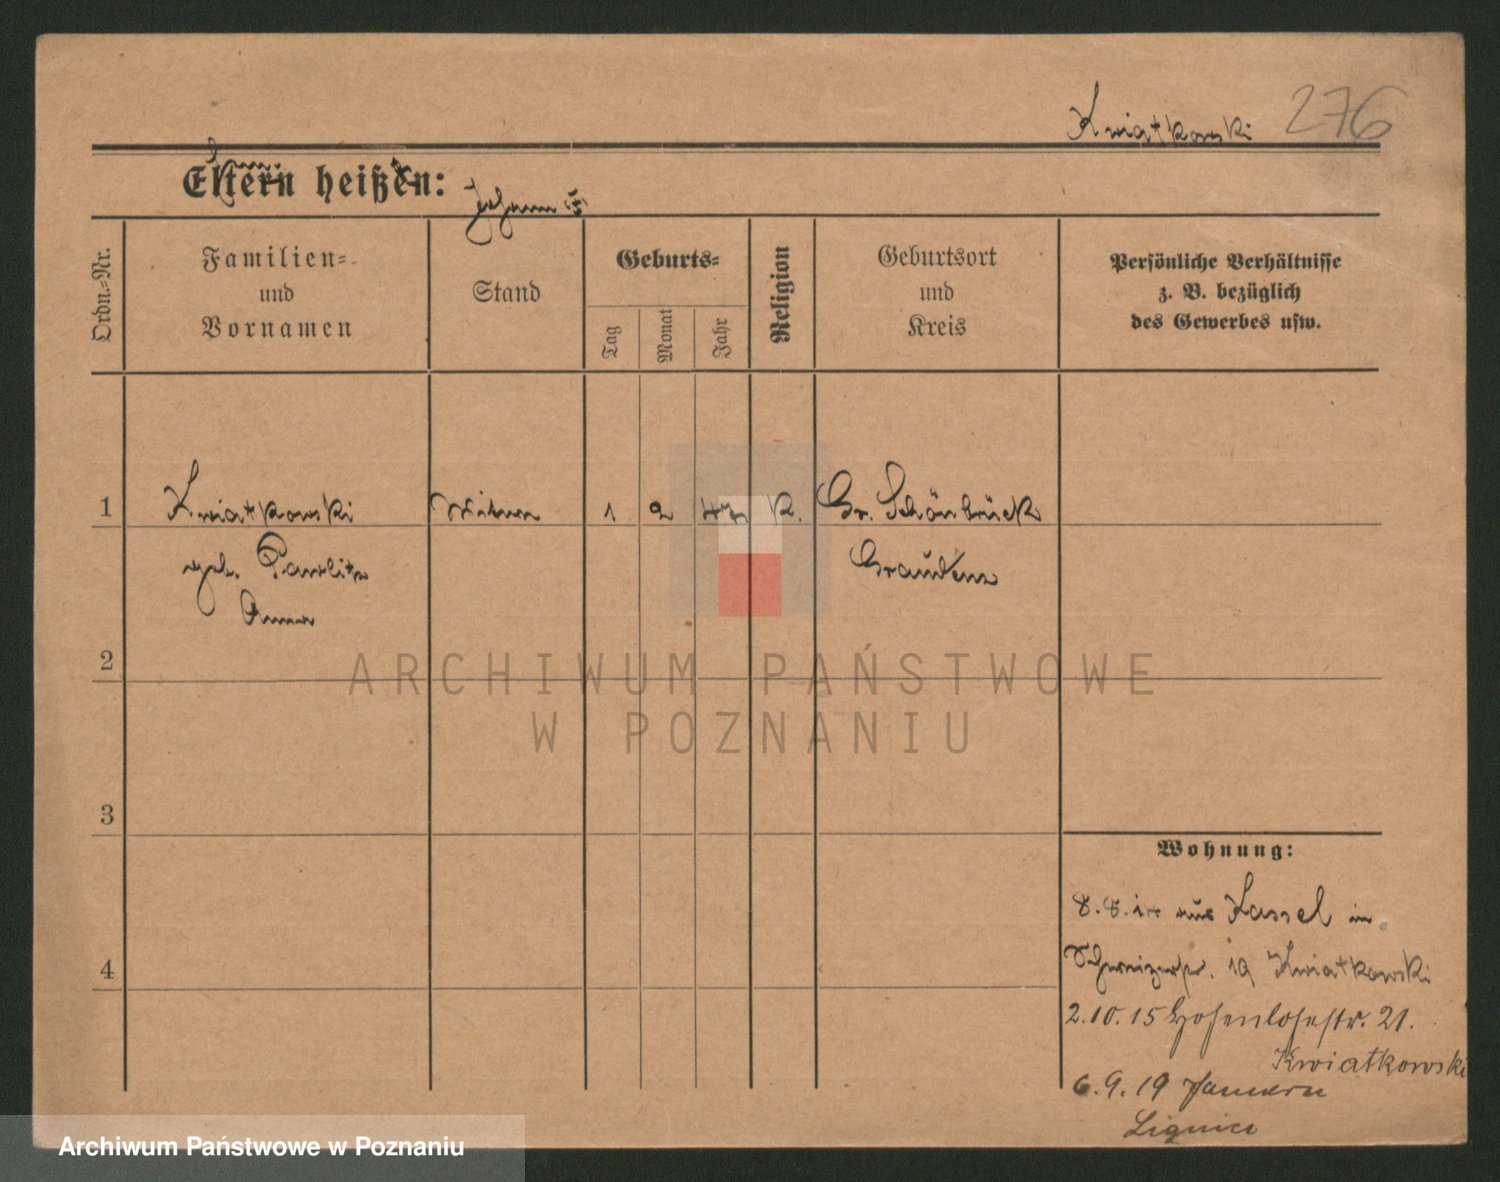 Kwiatkowski 276
Eltern heißen:
Johann
Ordn.-Nr.
Familien-
und
Vornamen
Stand
Geburts-
Tag
Monat
Jahr
Religion
Geburtsort
und
Kreis
Persönliche Verhältnisse
z. B. bezüglich
des Gewerbes usw.
1 Kwiatkowski Witwe 1 2 47 K. Gr. Schönbrück
geb. Pawlitz Graudenz
Anna
2
ARCHIWUM PAŃSTWOWE
W POZNANIU
3
Wohnung:
8.8. aus Kassel in
4 Schweizerstr. 19 Kwiatkowski
2.10.15 Hohenlohestr. 21.
Kwiatkowski
6.9.19
Lignice
Archiwum Państwowe w Poznaniu